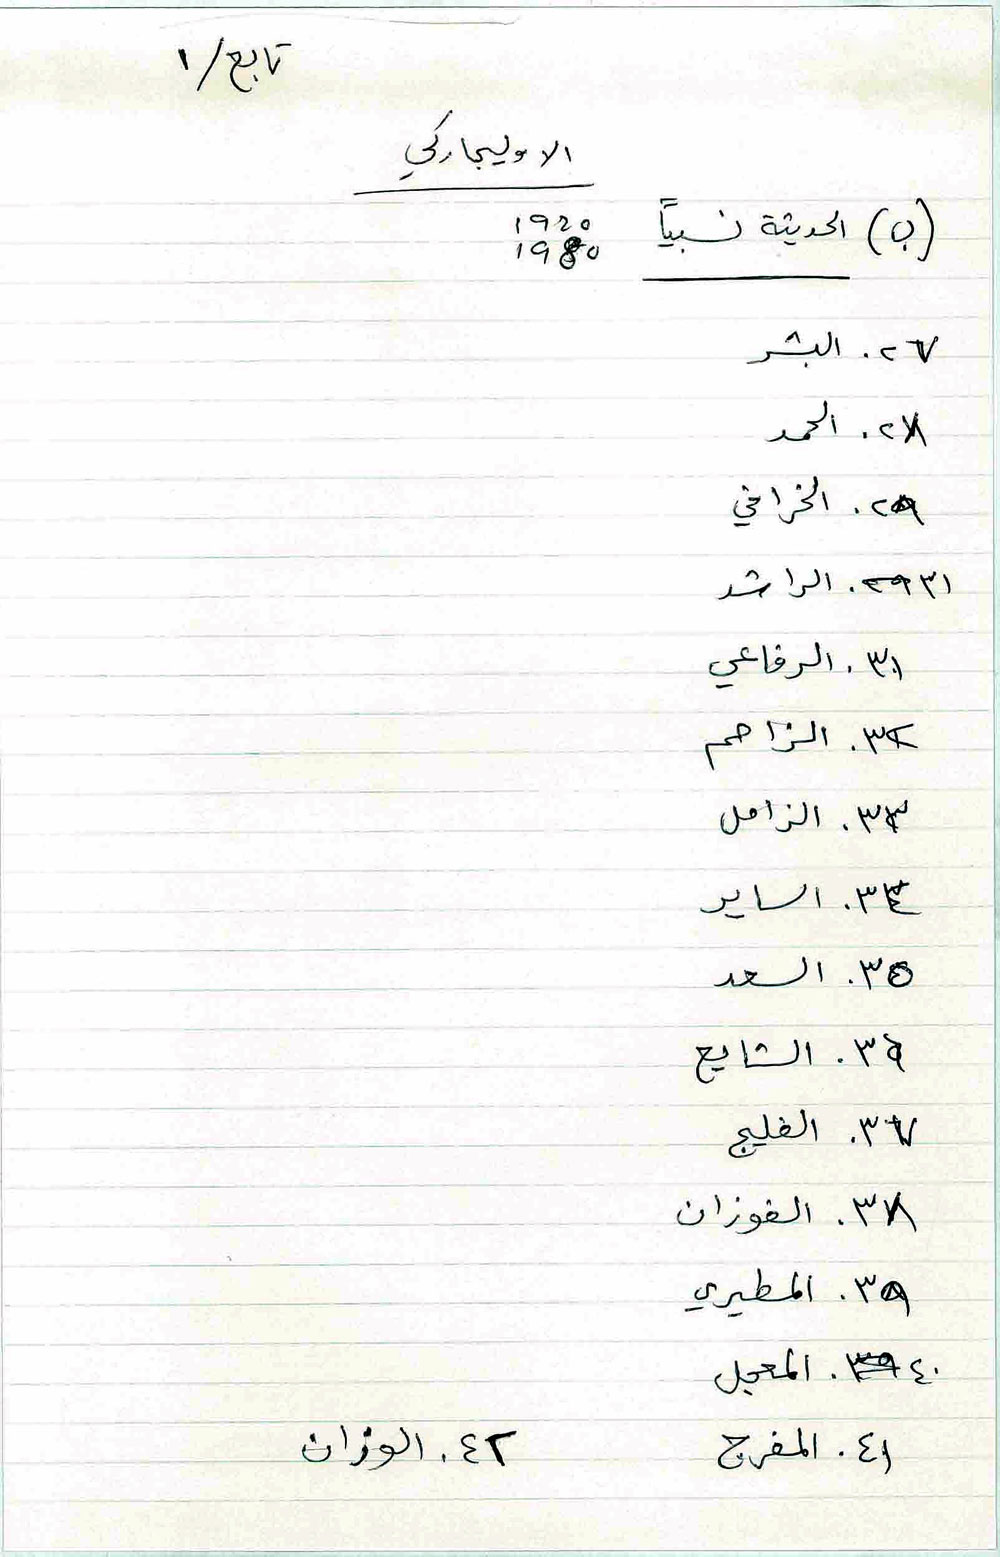 تابع/١
الاوليجاركي
(ب) الحديثة نسبياً 1920
1980
٢٧. البشر
٢٨. الحمد
٢٩. الخرافي
٣١. الراشد
٣١. الرفاعي
٣٢. الزاحم
٣٣. الزامل
٣٤. الساير
٣٥. السعد
٣٦. الشايع
٣٧. الفليج
٣٨. الفوزان
٣٩. المطيري
٤٠. المعجل
٤١. المفرج ٤٢. الوزان